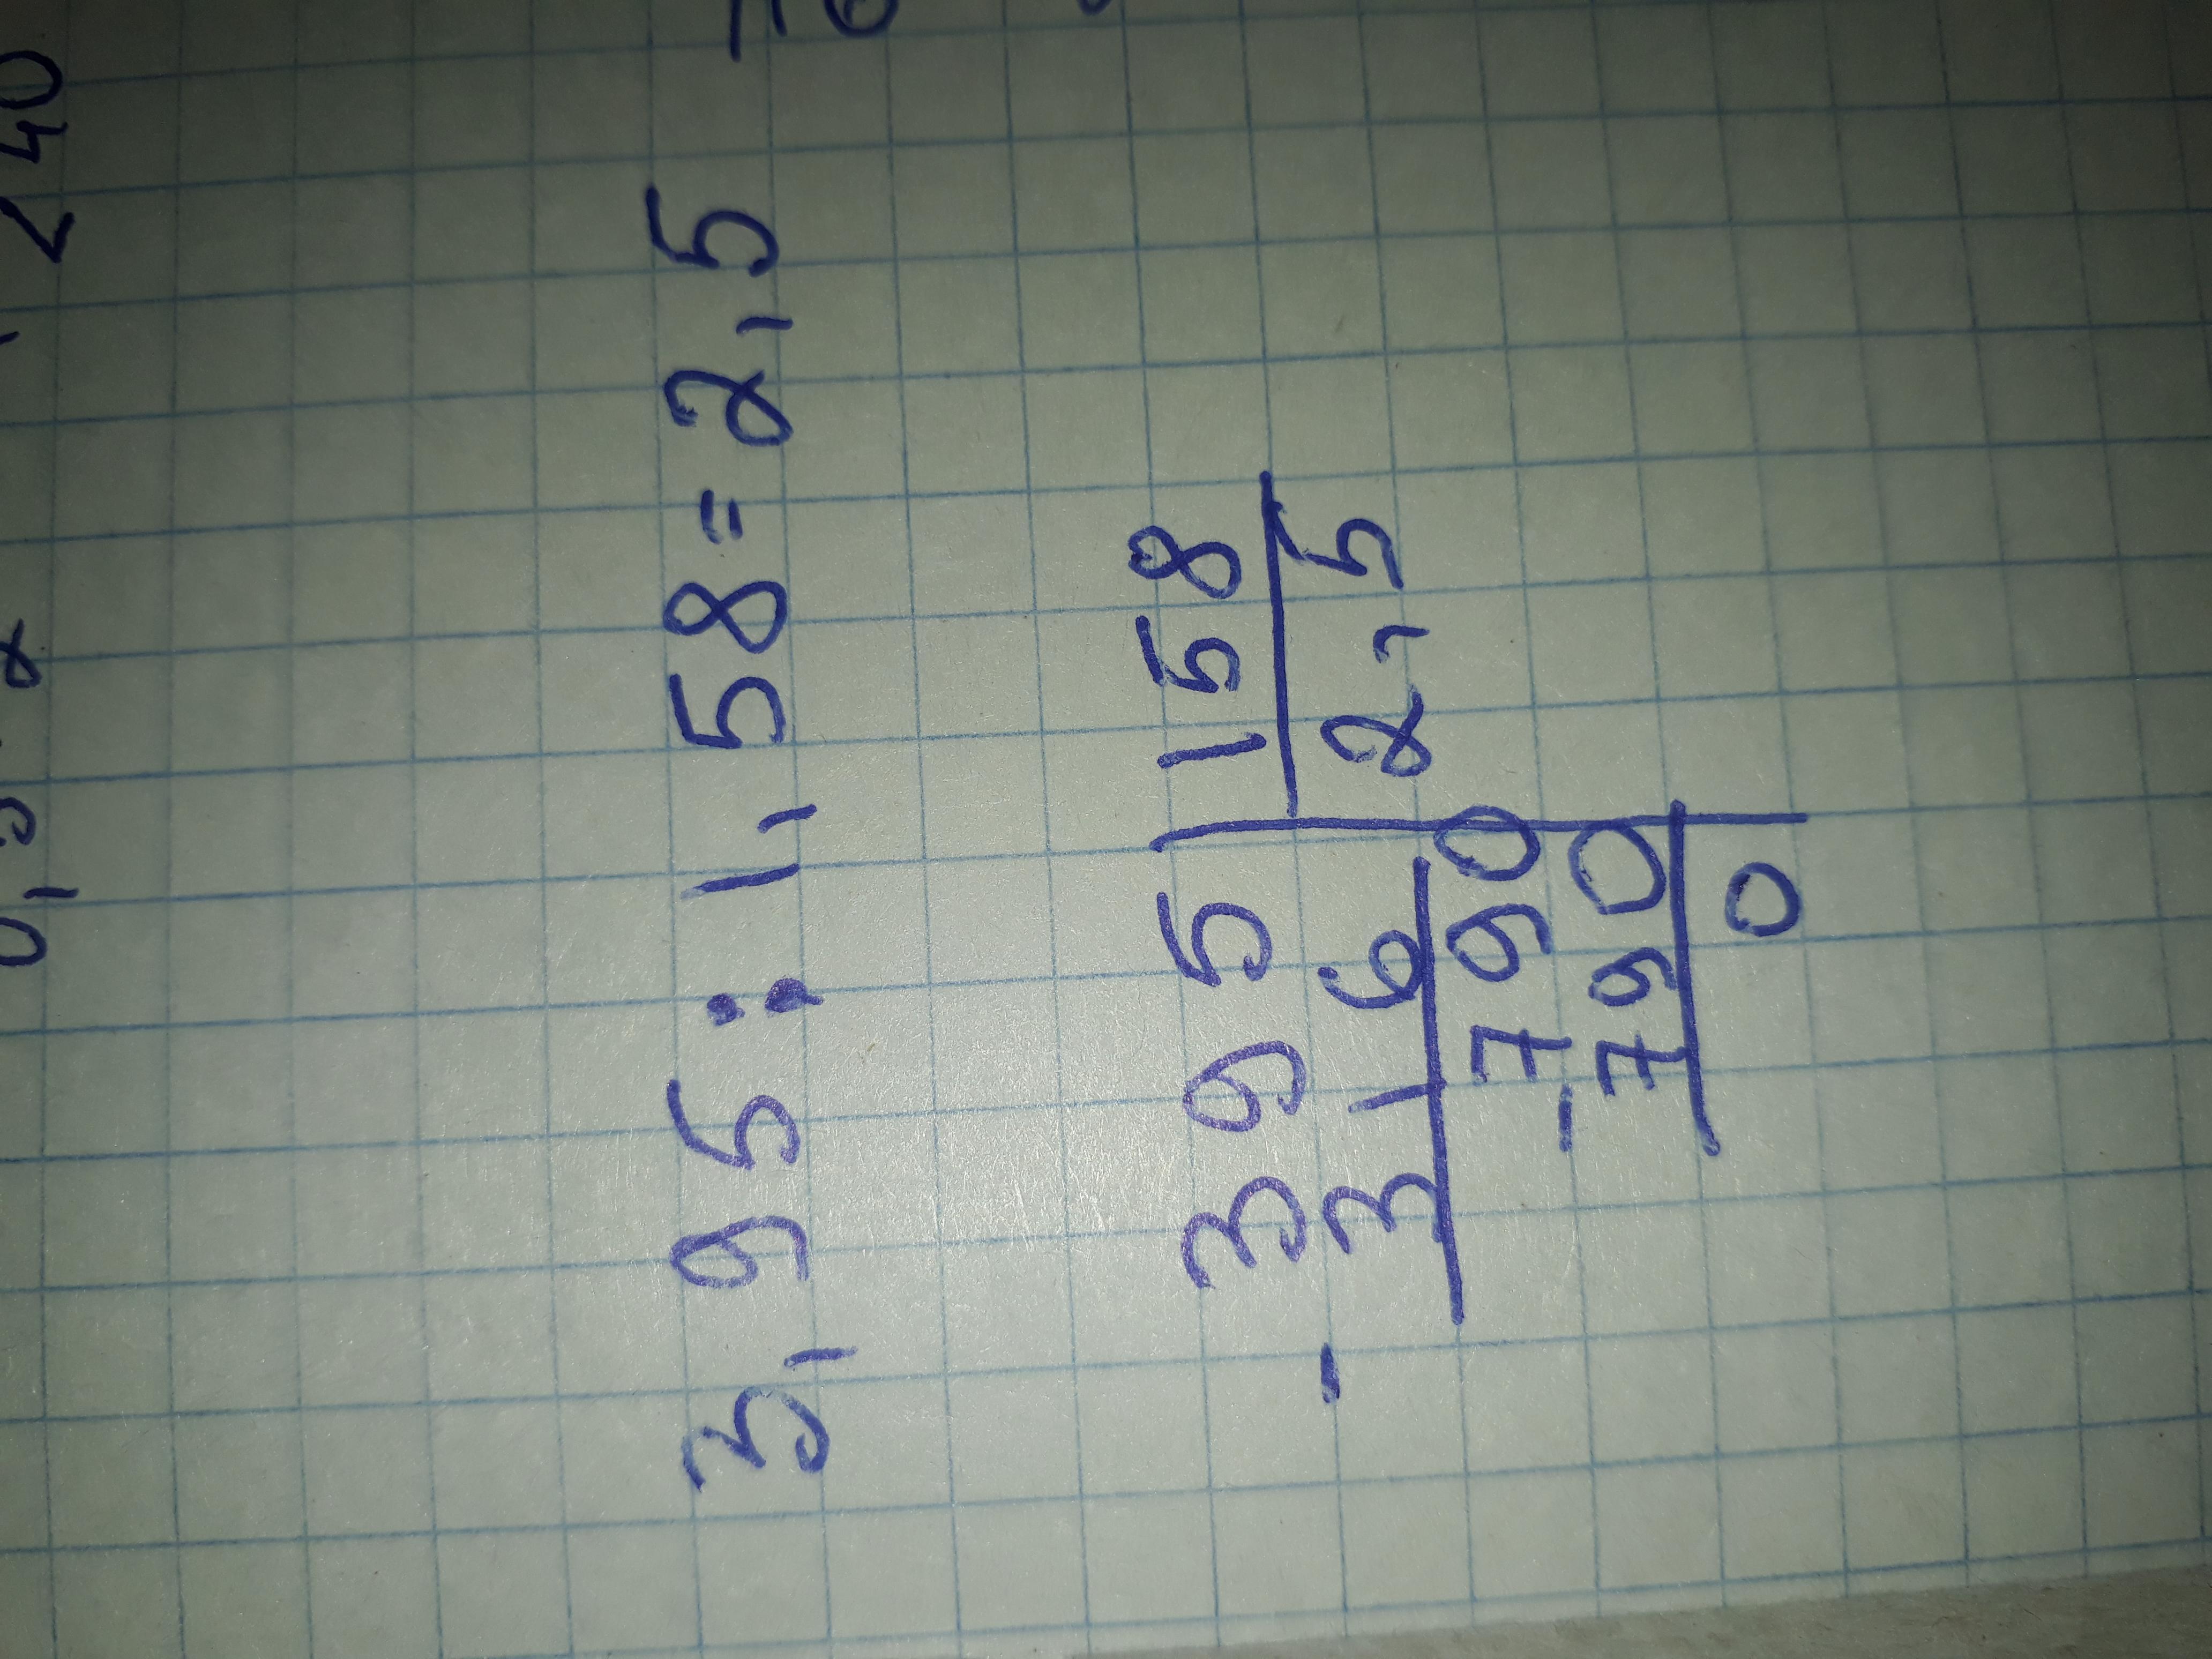 3,95:1,58=2,5
395 158
- 316 2,5
790
- 790
0
240